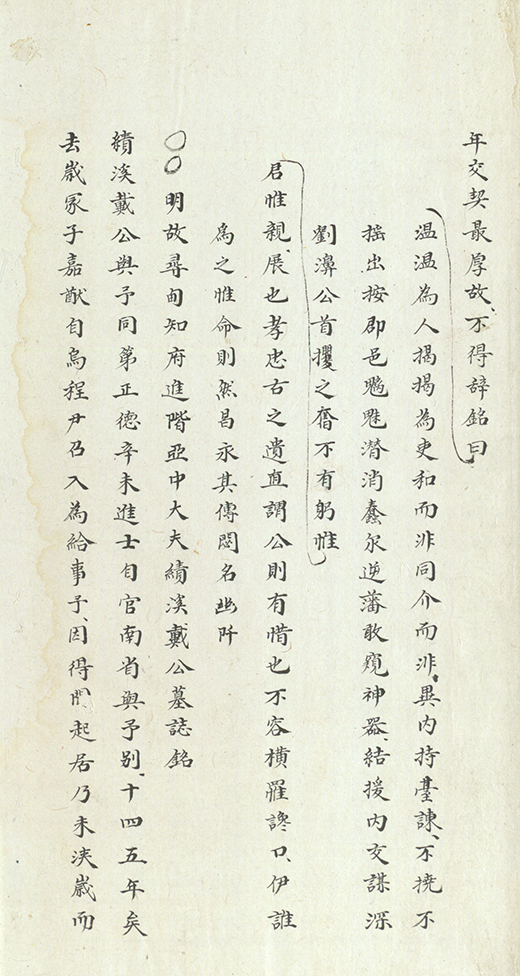 年交契最厚故不得辭銘曰
温温為人揭揭為吏和而非同介而非異内持臺諫不撓不
揺出按郡邑魍魎潜消蠢尔逆藩敢窺神器結援内交謀深
劉濞公首攖之奮不有躬惟
君惟親展也孝忠古之遺直謂公則有惜也不容横罹讒口伊誰
為之惟命則然昌永其傳閟名幽阡
○○明故尋甸知府進階亞中大夫績溪戴公墓誌銘
績溪戴公與予同第正德辛未進士自官南省與予别十四五年矣
去歲冢子嘉猷自烏程尹召入為給事予因得問起居乃未浹歲而